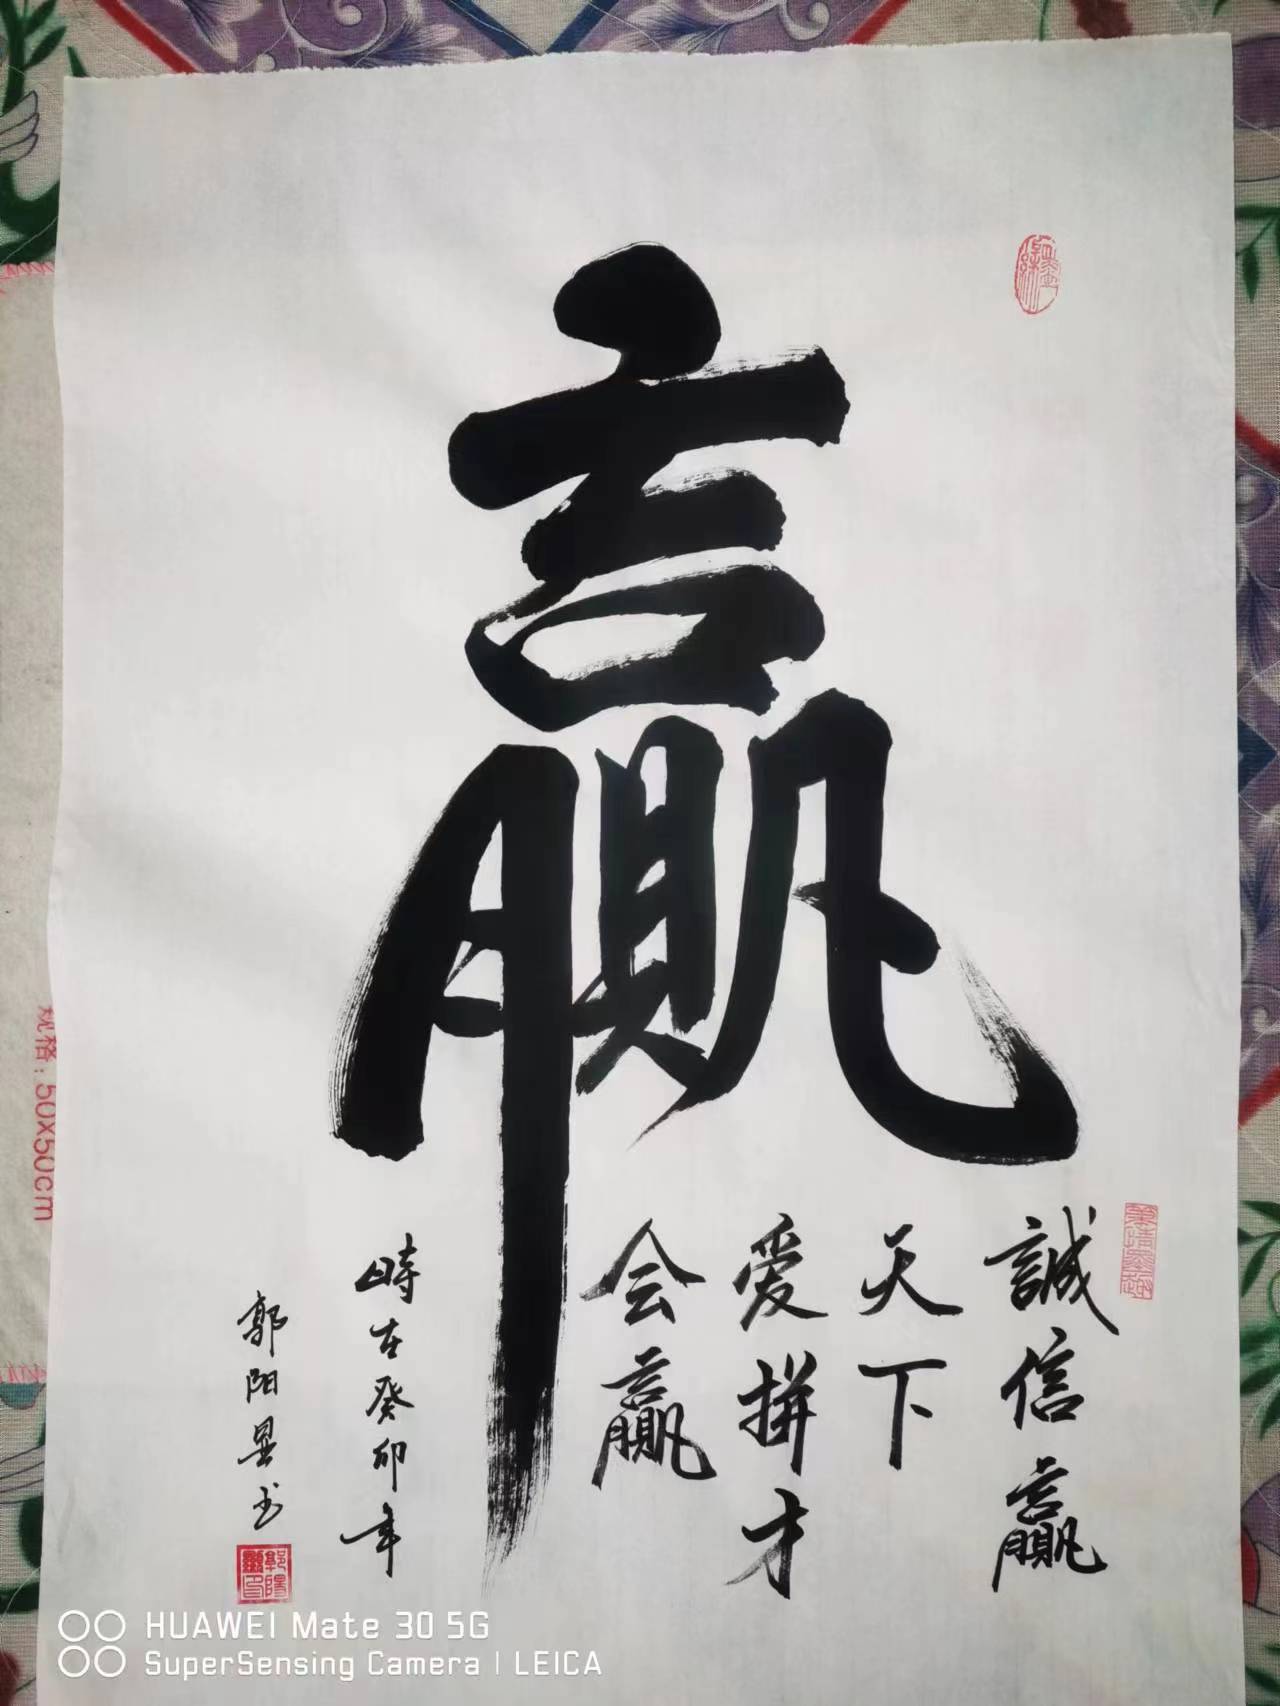 赢
誠信赢
天下
爱拼才
会赢
時在癸卯年
郭阳昱书
规格：50X50cm
HUAWEI Mate 30 5G
SuperSensing Camera | LEICA